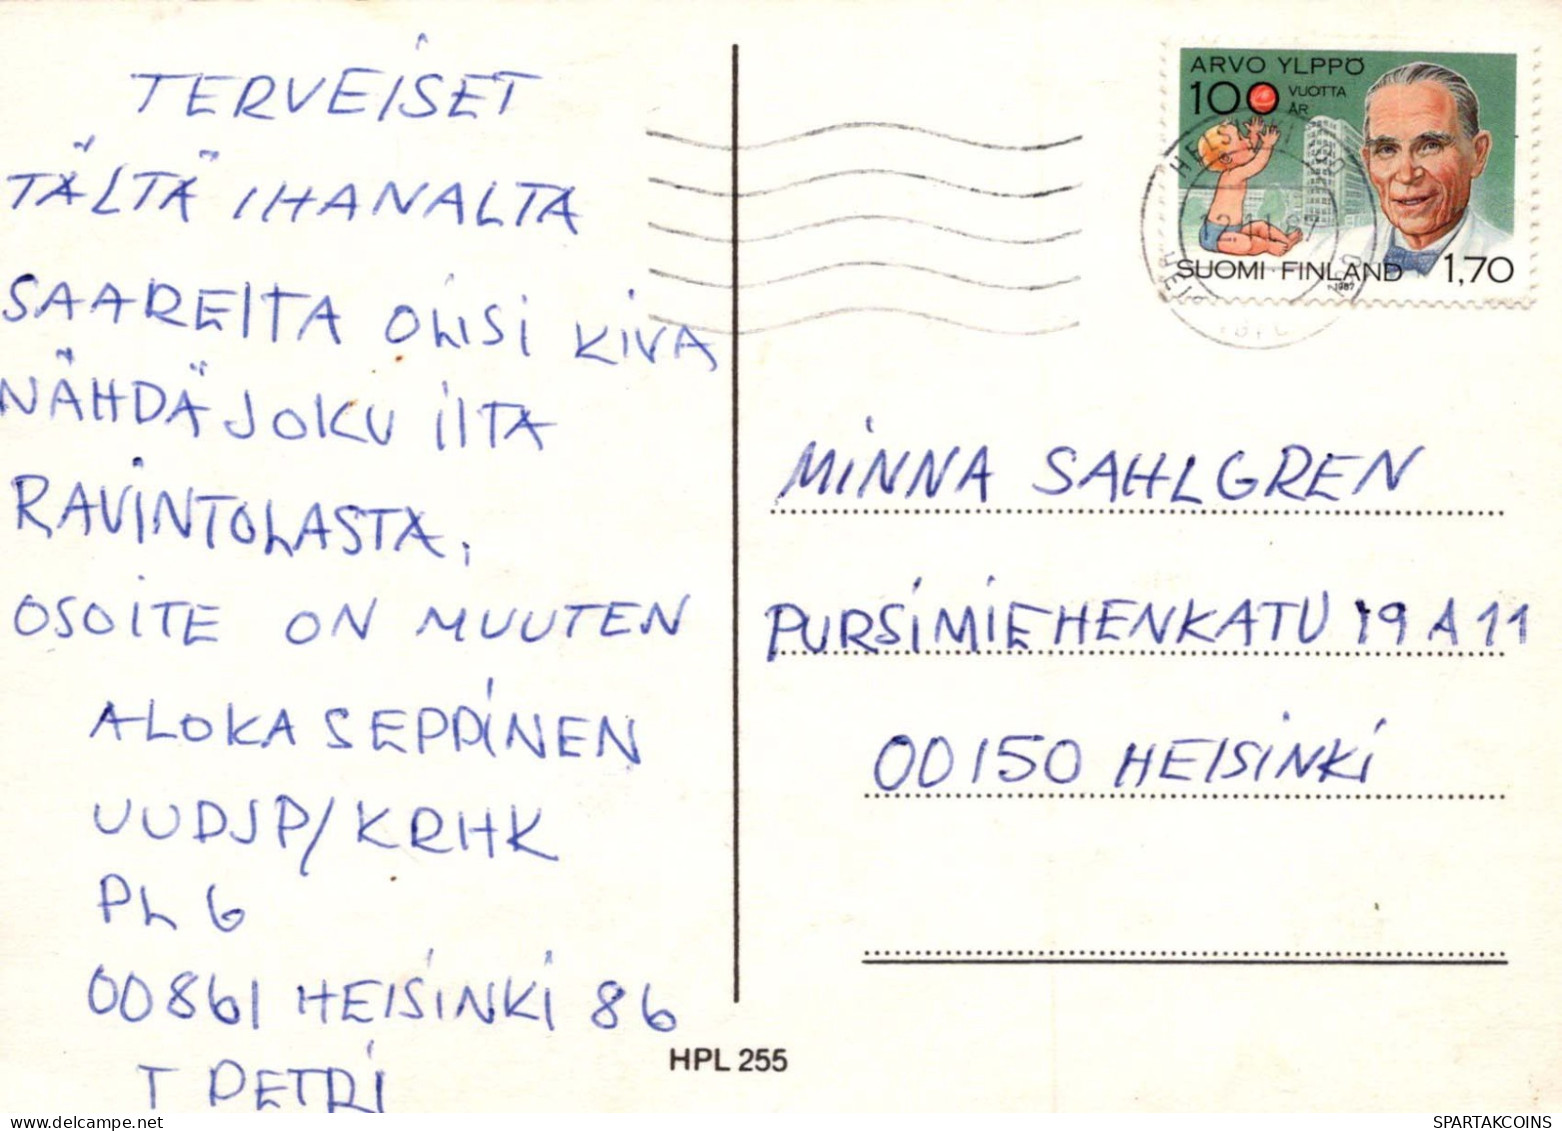 TERVEISET
TÄLTÄ IHANALTA
SAARELTA OLISI KIVA
NÄHDÄ JOKU ILTA
RAVINTOLASTA.
OSOITE ON MUUTEN
ALOKAS EPPINEN
UUDJP/KRHK
PL 6
00861 HELSINKI 86
T PETRI
ARVO YLPPÖ
100 VUOTTA
ÅR
HELSINKI
12.11.87
SUOMI·FINLAND 1,70
1987
MINNA SAHLGREN
PURSIMIEHENKATU 19 A 11
00150 HELSINKI
HPL 255
SPARTAKCOINS